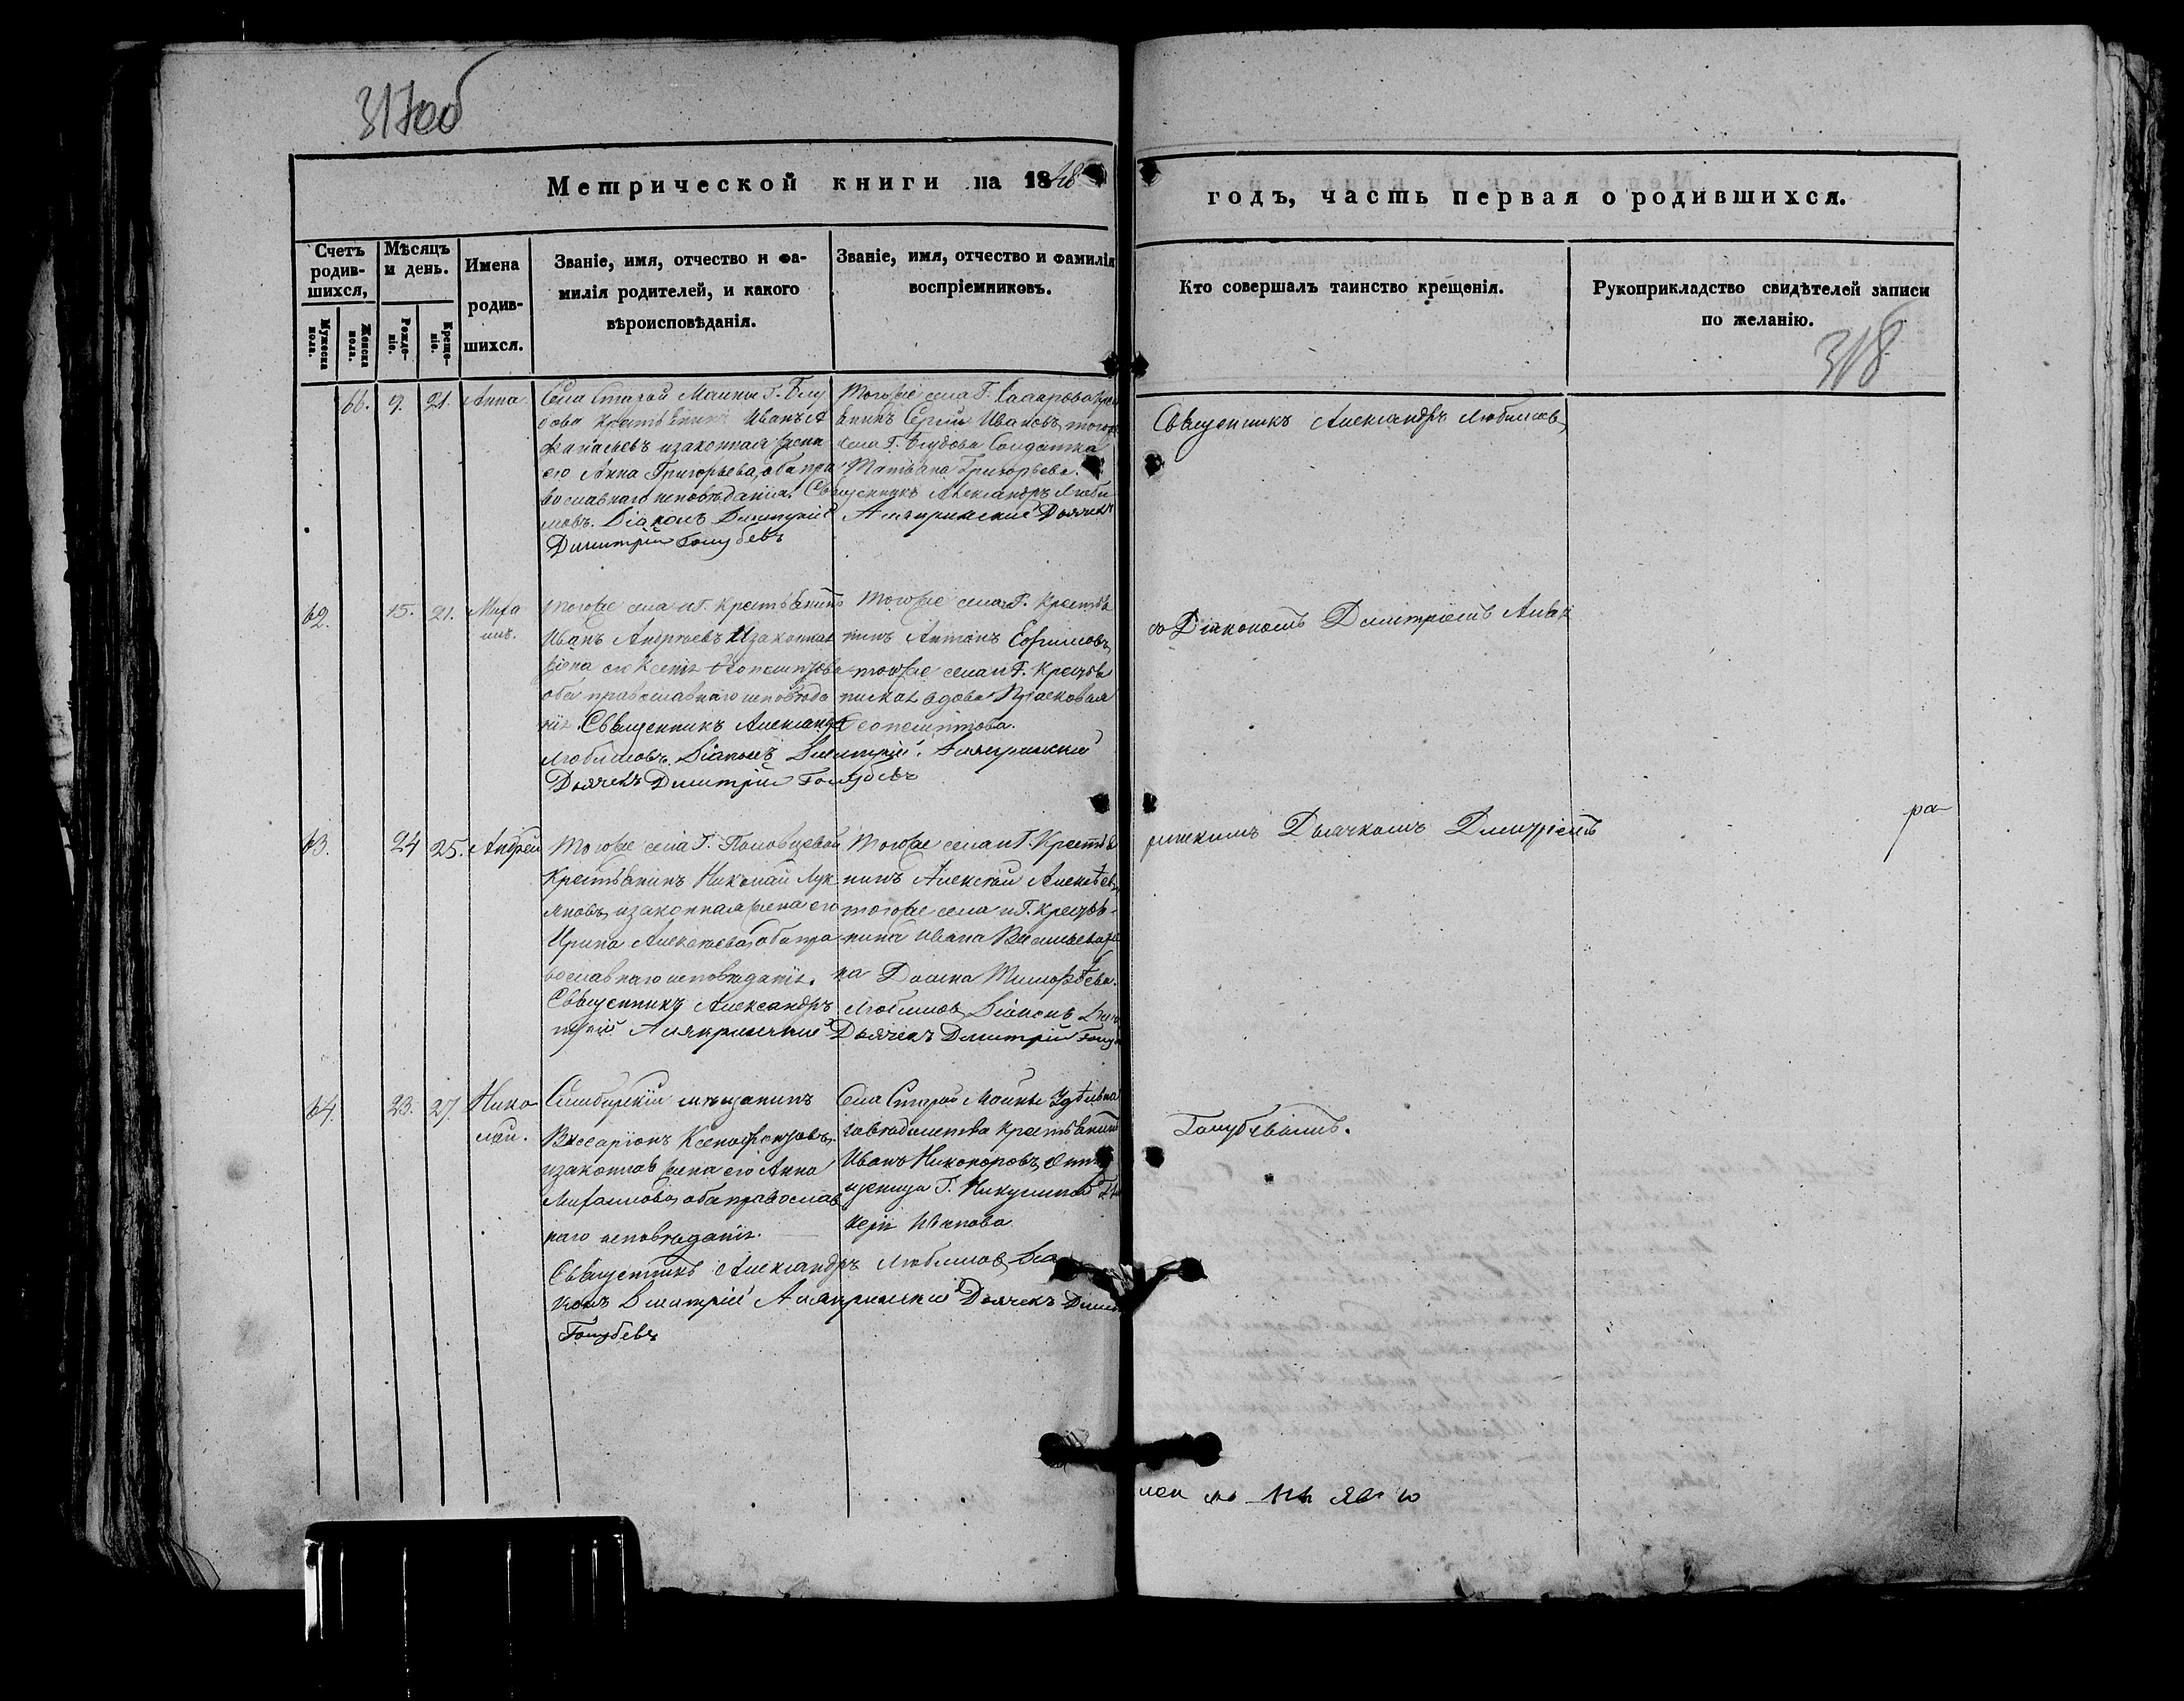 317об
Метрической книги на 1848
годъ, часть первая о родившихся.
Счетъ родив-шихся,
Мужеска пола.
Женска пола.
Мѣсяцъ и день.
Рожде-ніе.
Креще-ніе.
Имена
родив-
шихся.
Званіе, имя, отчество и фа-
милія родителей, и какого
вѣроисповѣданія.
Званіе, имя, отчество и фамилія
воспріемниковъ.
Кто совершалъ таинство крещенія.
Рукоприкладство свидѣтелей записи
по желанію.
318
66. 9. 21. Анна
Села Старой Майны Г. Блу
дова Крестьянинъ Иванъ А
фанасьевъ и законная жена
его Анна Григорьева, оба пра
вославнаго исповѣданія.
Тогоже села Г.
Сергѣй Ивановъ, тогоже
села Г. Блудова Солдатка
Татьяна Григорьева.
Священникъ Александръ Люби
мовъ. Діаконъ Димитрій Алякринскій Дьячекъ
Димитрій Голубевъ
Священникъ Александръ Любимовъ,
62. 15. 21. Миха
илъ.
Тогоже села и Г. Крестьянинъ
Иванъ Андреевъ и законная
жена его Ксенія
оба православнаго исповѣда
нія.
Тогоже села и Г. Крестья
нинъ Антонъ Ефимовъ,
тогоже села и Г. Крестья
нская вдова
Священникъ Александръ
Любимовъ. Діаконъ Димитрій Алякринскій
Дьячекъ Димитрій Голубевъ
со Діакономъ Димитріемъ Аляк
63. 24 25. Андрей
Тогоже села Г. Половцевой
Крестьянинъ Николай Лук
яновъ, и законная жена его
Ирина Алексѣева, оба пра
вославнаго исповѣданія.
Тогоже села и Г. Крестья
нинъ Алексѣй Алексѣевъ,
тогоже села и Г. Крестья-
нина Ивана Васильева же
на Домна Тимофѣева.
Священникъ Александръ Любимовъ, Діаконъ Дими
трій Алякринскій Дьячекъ Димитрій Голуб
ра
ринскимъ Дьячкомъ Димитріемъ
64. 23. 27. Нико
лай.
Симбирскій мѣщанинъ
Виссаріонъ Ксенофонтовъ,
и законная жена его Анна
Михайлова, оба православ
наго исповѣданія.
Села Старой Майны Удѣльна
го вѣдомства Крестьянинъ
Иванъ Никоноровъ,
Иванова
Священникъ Александръ Любимовъ, Діа
конъ Димитрій Алякринскій Дьячекъ Димит
Голубевъ
Голубевымъ.